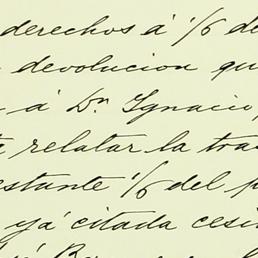 derechos á 1/6 de
devolucion qu
á Dn. Ignacio,
relatar la tra
estante 1/6 del p
ya citada cesi